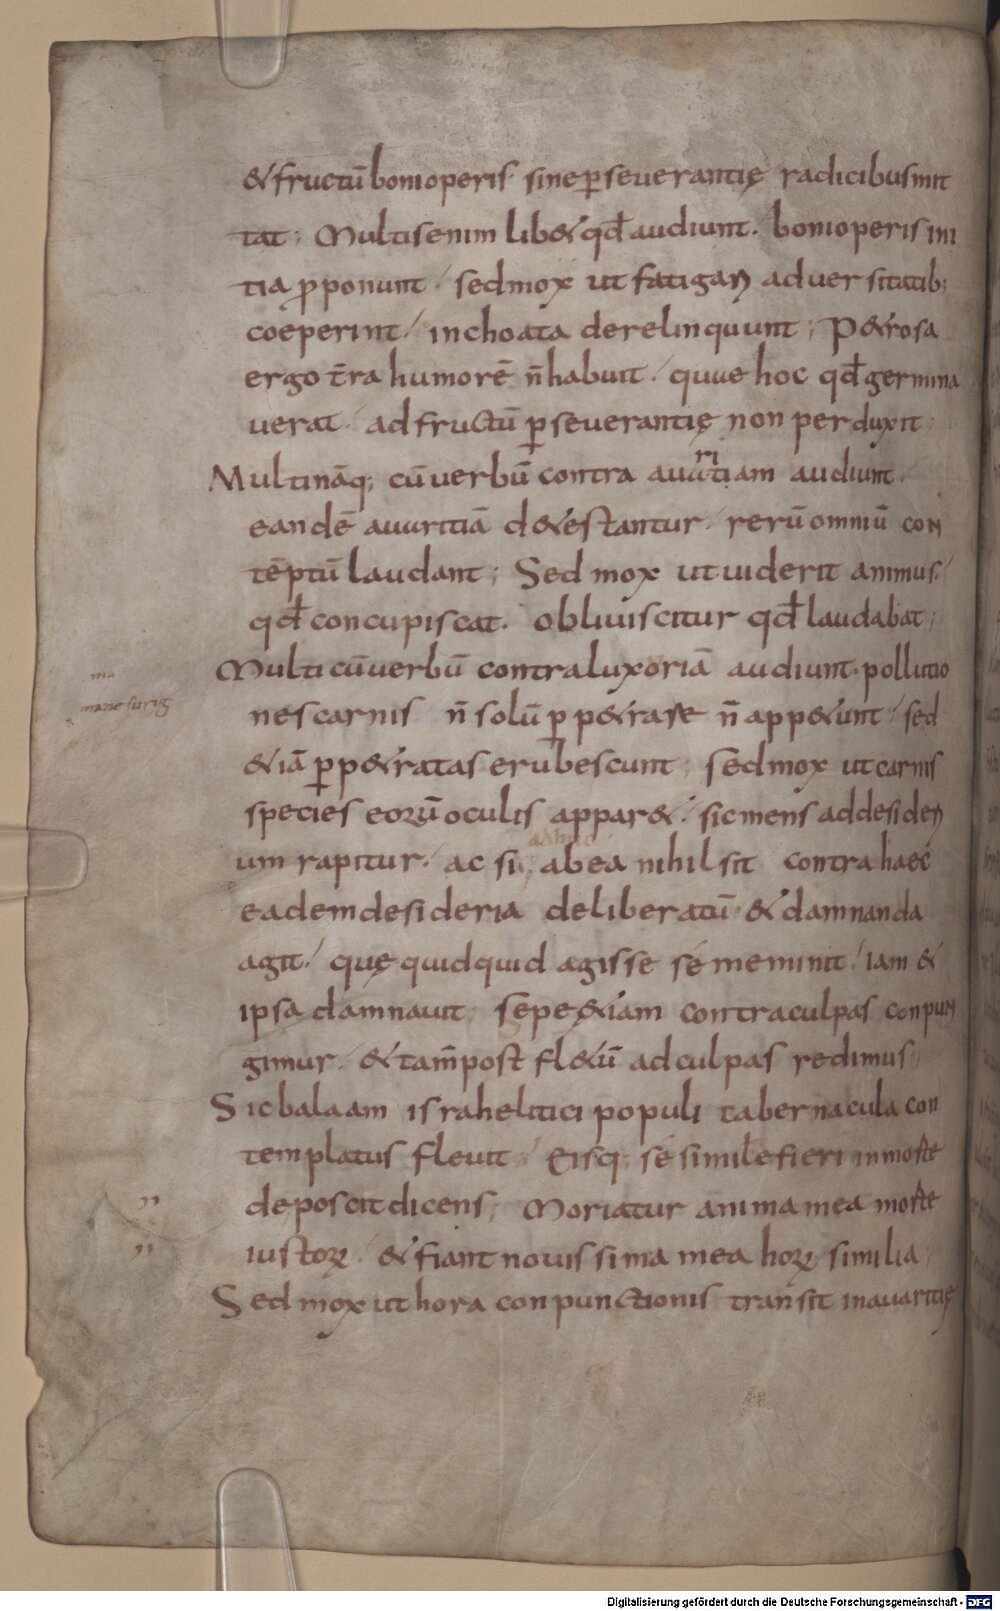 & fructū boni operis sine ꝑseverantię radicibus mit
tat; Multis enim lib& qđ audiunt. boni operis ini
tia ꝓponunt, sed mox ut fatigari adversitatib;
coeperint, inchoata derelinquunt; P&rosa
ergo t̄ra humorē n̄ habuit, quae hoc qđ germina
verat, ad fructū ꝑseverantię non perduxit;
Multi nāq; cū verbū contra avaritiam audiunt.
eandē avaritiā d&estantur, rerū omniū con
tēptū laudant; Sed mox ut viderit animus,
qđ concupiscat. obliviscitur qđ laudabat;
Multi cū verbū contra luxoriā audiunt, pollutio
nes carnis n̄ solū ꝑp&rare n̄ app&unt, sed
&iā ꝑp&ratas erubescunt; sed mox ut carnis
species eorū oculis appar&, sic mens ad desideri
um rapitur, ac si adhuc ab ea nihil sit contra haec
eadem desideria deliberatū, & damnanda
agit, quę quidquid agisse sé meminit, iam &
ipsa damnavit; sepe &iam contra culpas conpun
gimur, & tam̄ post fl&ū ad culpas redimus,
Sic balaam israhelitici populi tabernacula con
templatus flevit, Eisq; sé simile fieri in morte
deposcit dicens; Moriatur anima mea morte
iustoꝝ, & fiant novissima mea hoꝝ similia,
Sed mox ut hora conpunctionis transit, in avaritię
Digitalisierung gefördert durch die Deutsche Forschungsgemeinschaft - DFG